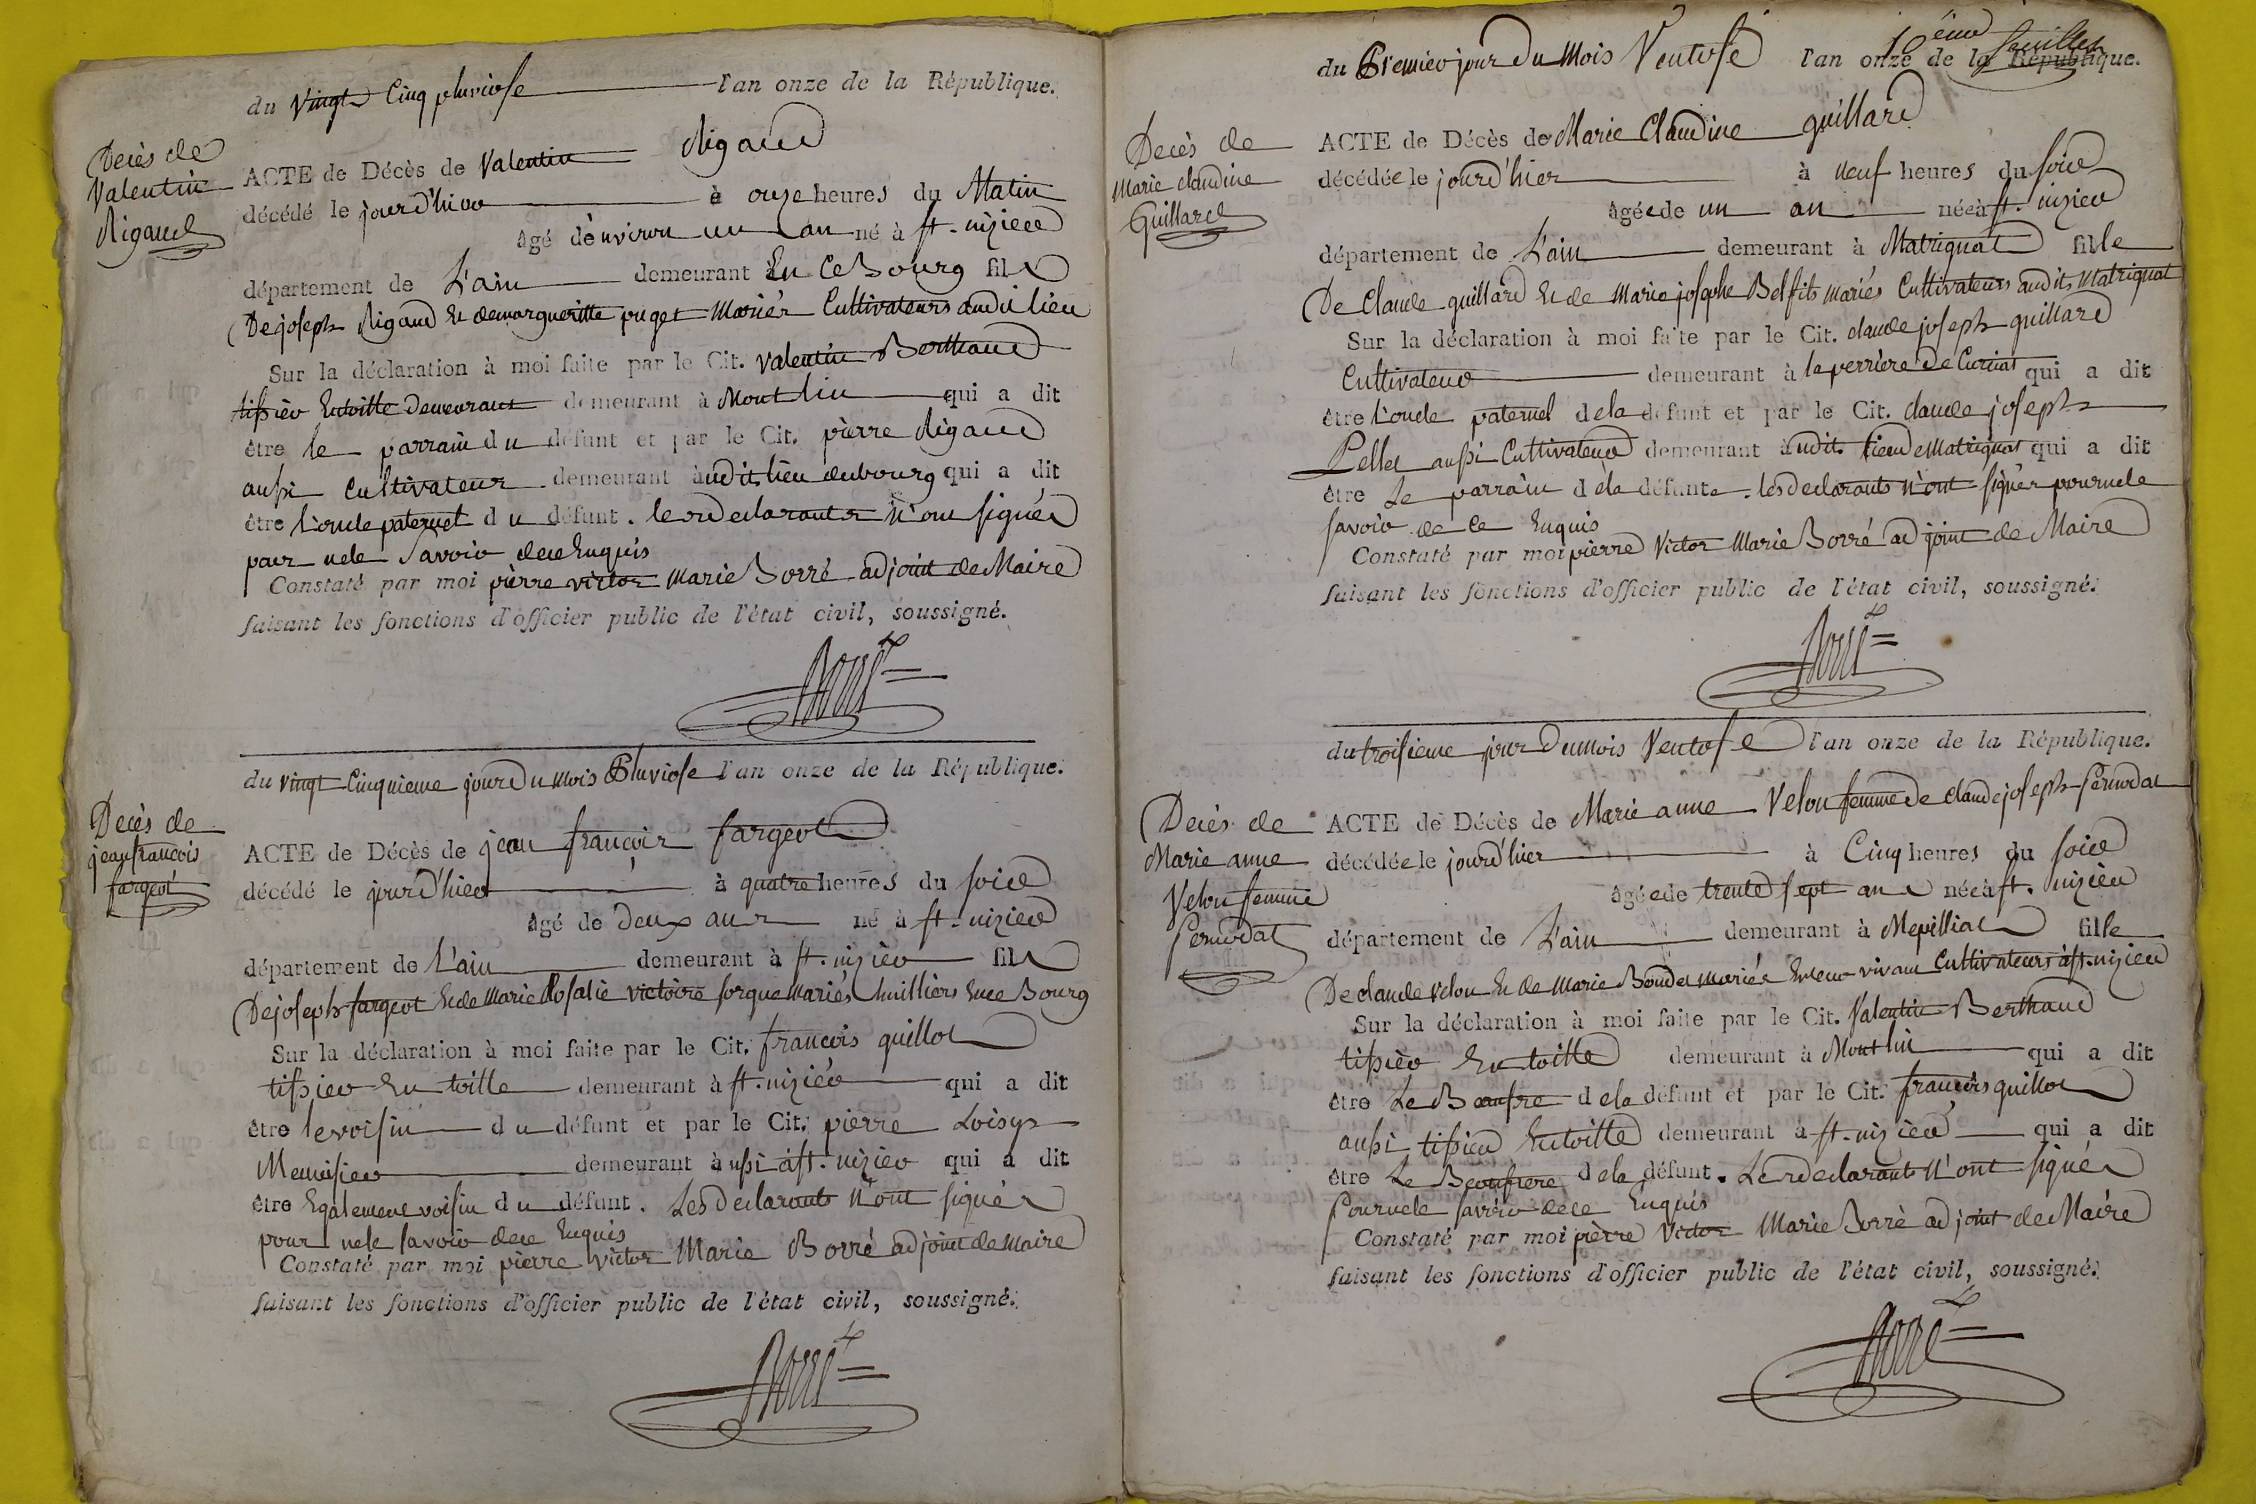 du Vingt Cinq pluviose l'an onze de la République.
Decès de
Valentin
Rigaud
ACTE de Décès de Valentin Rigaud
décédé le jourd'hier à onze heures du Matin
âgé d'environ un an né à st. nizier
département de L'ain demeurant En Ce Bourg fils
De joseph Rigaud Et de margueritte puget Mariés Cultivateurs audit lieu
Sur la déclaration à moi faite par le Cit. Valentin Berthaud
tissier Entoille Demeurant demeurant à Montlin qui a dit
être le parrain du défunt et par le Cit. pièrre Rigaud
aussi Cultivateur demeurant audit lieu du bourg qui a dit
être l'oncle paternel du défunt. les declarants n'ont signés
pour nele Savoir dece Enquis
Constaté par moi pièrre victor Marie Borré adjoint de Maire
faisant les fonctions d'officier public de l'état civil, soussigné.
Borré
du vingt Cinquieme jour Du Mois Pluviose l'an onze de la République.
Decès de
jean francois
fargeot
ACTE de Décès de jean françois fargeot
décédé le jourd'hier à quatre heures du soir
âgé de Deux ans né à st. nizier
département de L'ain demeurant à st. nizier fils
De joseph fargeot Et de Marie Rosalie victoire sorgue Mariés huilliers En ce Bourg
Sur la déclaration à moi faite par le Cit. francois guillot
tissier En toille demeurant à st. nizier qui a dit
être le voisin du défunt et par le Cit. pièrre Loisy
Menuisier demeurant aussi à st. nizier qui a dit
être Egalement voisin du défunt. Les Declarants n'ont signés
pour nele savoir dece Enquis
Constaté par moi pièrre victor Marie Borré adjoint de Maire
faisant les fonctions d'officier public de l'état civil, soussigné.
Borré
10 ème feuillet
du Premier jour Du Mois Ventose l'an onze de la République.
Decès de
Marie claudine
Guillard
ACTE de Décès de Marie Claudine guillard
décédée le jourd'hier à neuf heures du soir
âgée de un an née à st. nizier
département de L'ain demeurant à Matrignat fille
De Claude guillard Et de Marie josephe Belfits mariés Cultivateurs audit Matrignat
Sur la déclaration à moi faite par le Cit. claude joseph guillard
Cultivateur demeurant à la verrière de Curciat qui a dit
être l'oncle paternel dela défunt et par le Cit. claude joseph
Pellet aussi Cultivateur demeurant audit lieu de Matrignat qui a dit
être Le parrain dela défunte. les declarants n'ont signés pour nele
savoir de ce Enquis
Constaté par moi pierre Victor Marie Borré adjoint de Maire
faisant les fonctions d'officier public de l'état civil, soussigné.
Borré
du troisieme jour Du mois Ventose l'an onze de la République.
Decès de
Marie anne
Velon femme
Pernodat
ACTE de Décès de Marie anne Velon femme de claude joseph Pernodat
décédée le jourd'hier à Cinq heures du soir
âgée de trente sept ans née à st. nizier
département de L'ain demeurant à Mepilliat fille
De claude velon Et de Marie Boudet mariés En leur vivant Cultivateurs à st. nizier
Sur la déclaration à moi faite par le Cit. Valentin Berthaud
tissier En toille demeurant à Montlin qui a dit
être Le Beaufre dela défunt et par le Cit. françois guillot
aussi tissier Entoille demeurant à st. nizier qui a dit
être Le Beaufrere dela défunt. Les declarants n'ont signés
Pour nele savoir dece Enquis
Constaté par moi pièrre Victor Marie Borré adjoint de Maire
faisant les fonctions d'officier public de l'état civil, soussigné.
Borré